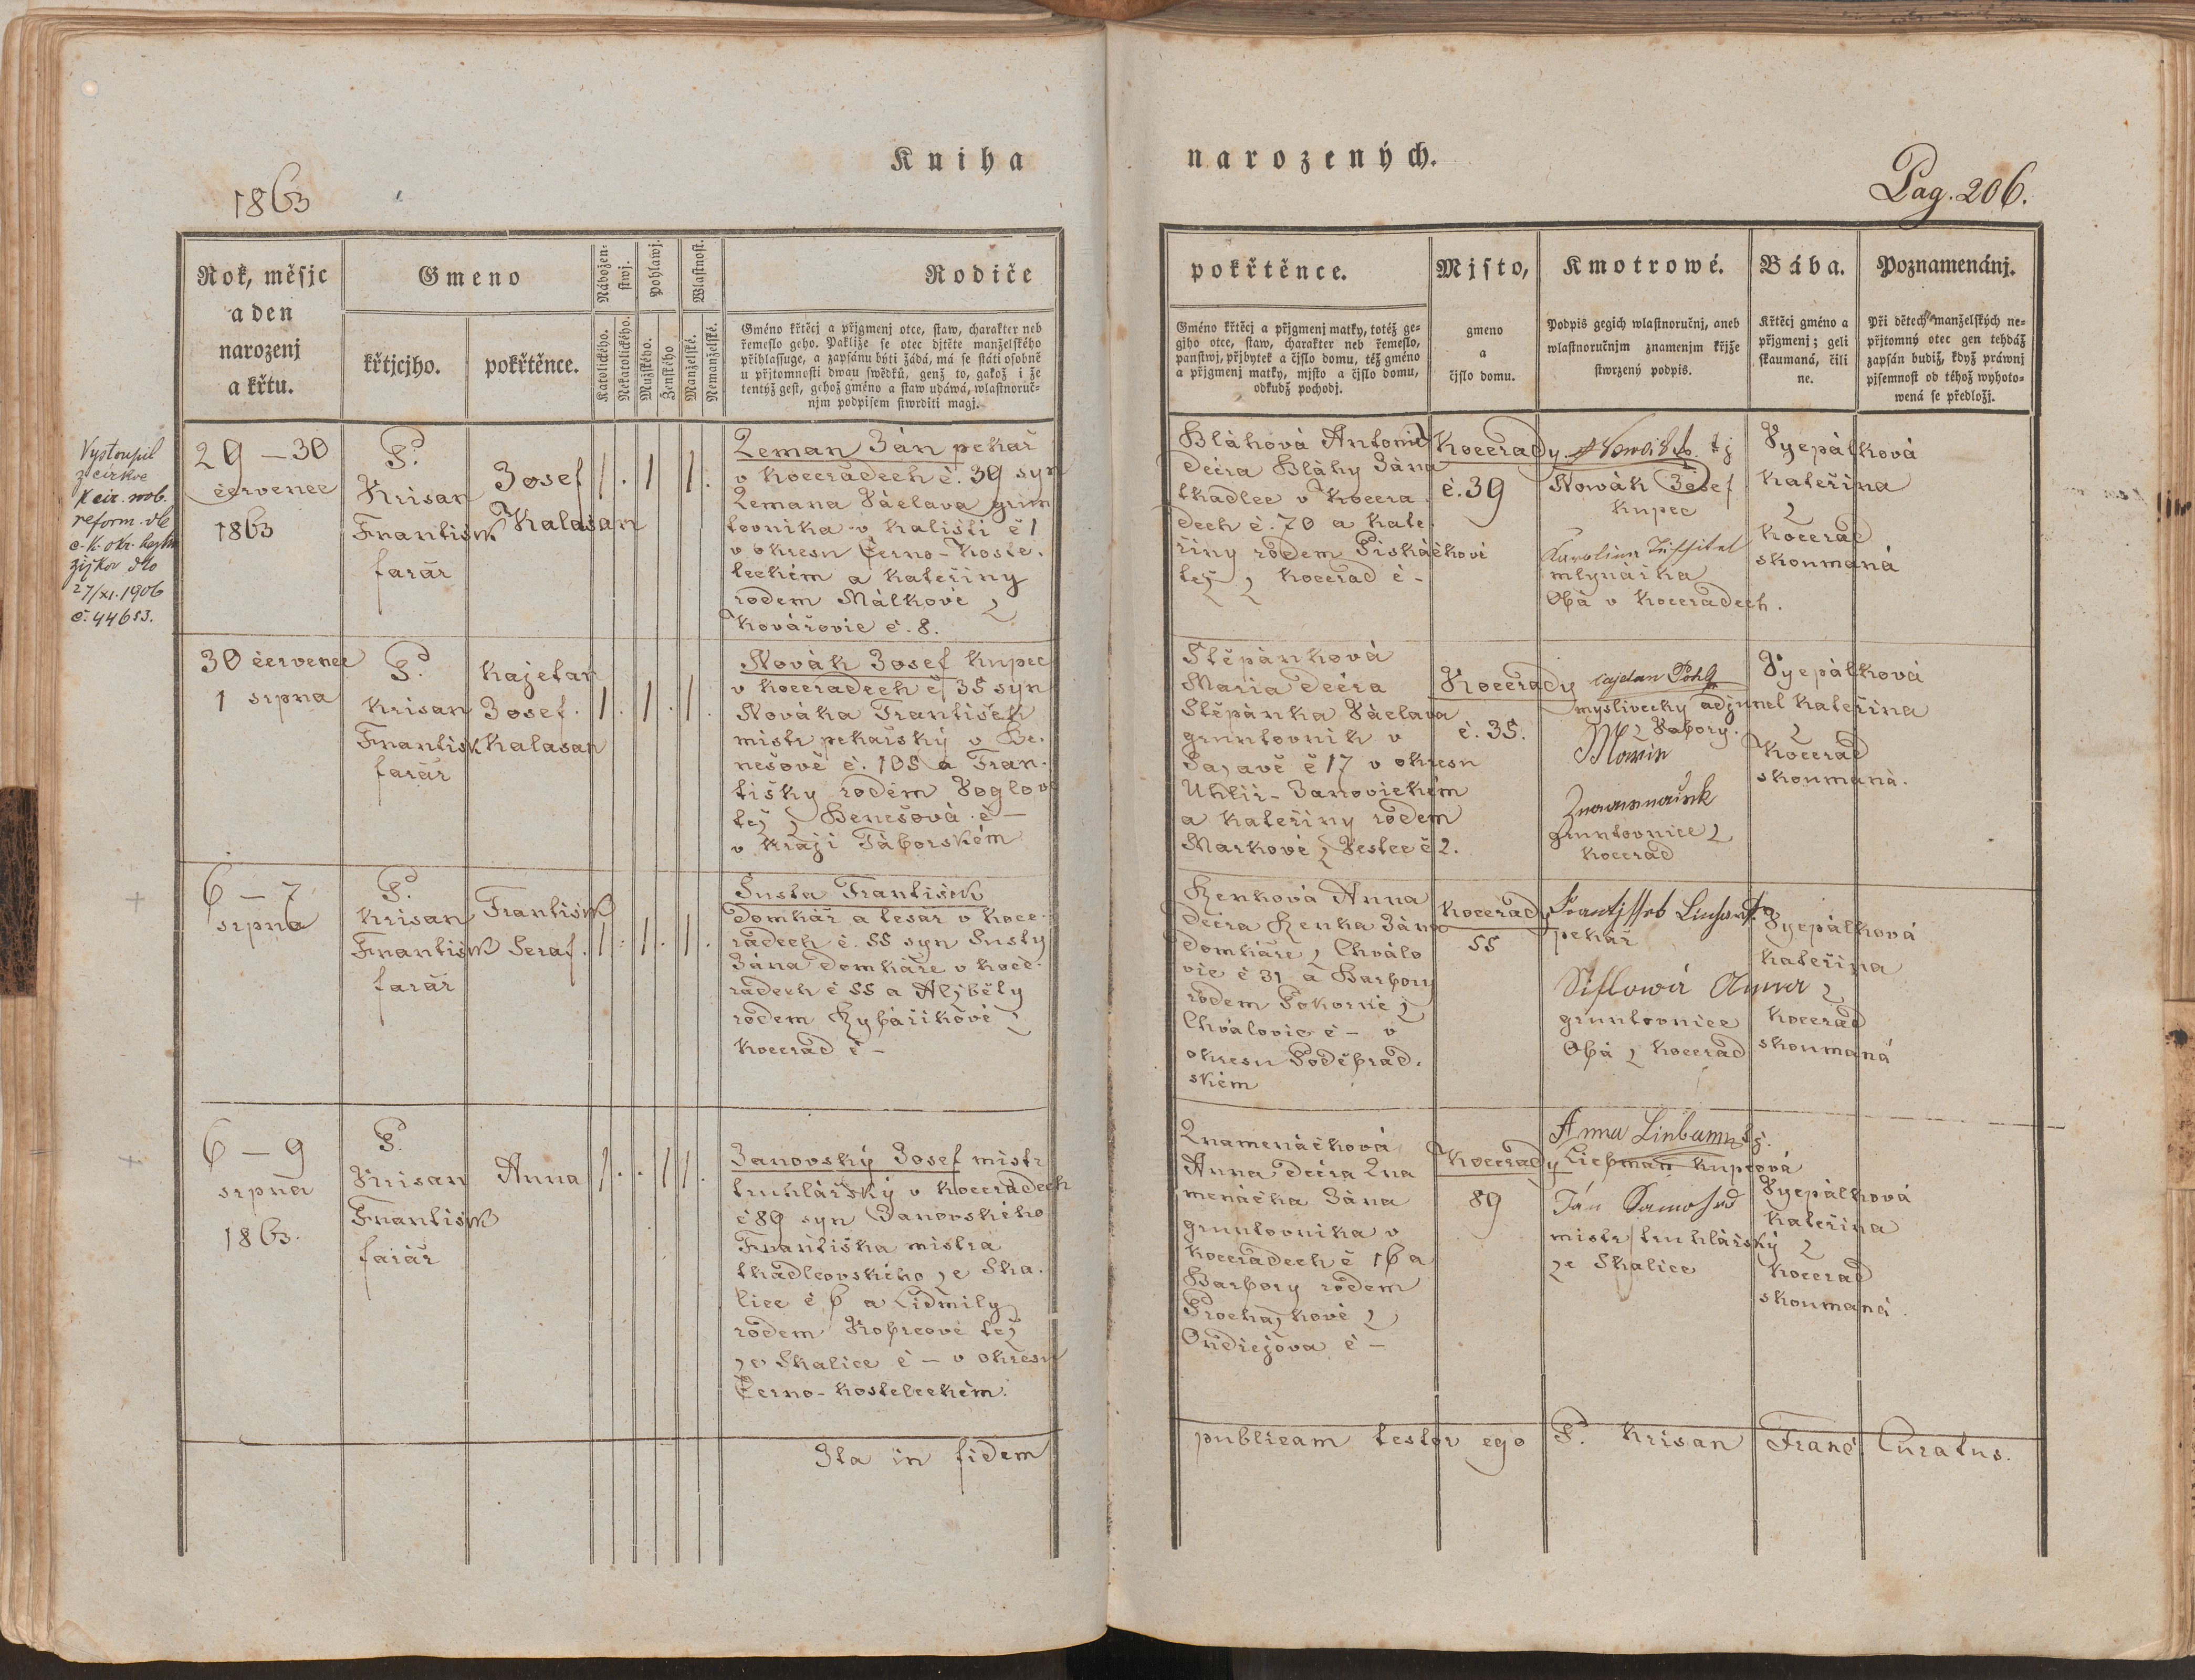 Kniha
narozených.
1863
Pag. 206.
Rok, měsjc
a den
narozenj
a křtu.
Gmeno
křtjcjho.
pokřtěnce.
Nábožen-
stwj.
Katolického.
Nekatolického.
Pohlawj.
Mužského.
Ženského
Wlastnost.
Manželské.
Nemanželské.
Rodiče
Gméno křtěcj a přjgmenj otce, staw, charakter neb
řemeslo geho. Pakliže se otec djtěte manželského
přihlassuge, a zapsánu býti žádá, má se státi osobně
u přjtomnosti dwau swědků, genž to, gakož i že
tentýž gest, gehož gméno a staw udáwá, wlastnoruč-
njm podpisem stwrditi magj.
pokřtěnce.
Gméno křtěcj a přjgmenj matky, totéž ge-
gjho otce, staw, charakter neb řemeslo,
panstwj, přjbytek a čjslo domu, též gméno
a přjgmenj matky, mjsto a čjslo domu,
odkudž pochodj.
Mjsto,
gmeno
a
čjslo domu.
Kmotrowé.
Podpis gegich wlastnoručnj, aneb
wlastnoručnjm znamenjm křjže
stwrzený podpis.
Bába.
Křtěcj gméno a
přjgmenj; geli
skaumaná, čili
ne.
Poznamenánj.
Při dětech manželských ne-
přjtomný otec gen tehdáž
zapsán budiž, když práwnj
pjsemnost od téhož wyhoto-
wená se předložj.
Vystoupil
z církve
k cír. 
reform. dle
c. k. okr. hejtm
Žižkov dto
27/XI. 1906
č. 44653.
29 – 30
červenec
1863
P.
Krisan
Frantisek
farář
Josef
Kalasan
1 . 1 1 .
Zeman Ján pekař
v Kocerádech č. 39 syn
Zemana Václava grun
tovníka v Kališti č 1
v okresu Černo-Koste.
leckém a Kateřiny
rodem Málkové z
Kovářovic č. 8.
Bláhová Antonie
dcéra Bláhy Jána
tkadlec v Kocera
dech č. 70 a Kate.
řiny rodem Piskáčkové
též z Kocerad č –
Kocerady
č. 39
Nowák Josef
kupec
Karolina
mlynářka
Obá v Koceradech.
Vyepálková
Kateřina
z
Kocerad
skoumaná
30 červenec
1 srpna
P.
Krisan
Frantisk
farář
Kajetan
Josef.
Kalasan
1 . 1 . 1 .
Novák Josef kupec
v Koceradech č 35 syn
Nováka František
mistr pekařský v Be.
nešově č. 105 a Fran.
tišky rodem Voglové
též z Benešová č –
v kraji Táborském
Stěpánková
Maria dcéra
Stěpánka Václava
gruntovník v
Sazavě č 17 v okresu
Uhlíř-Janovickém
a Kateřiny rodem
Markové z Vestec č 2.
Kocerady
č. 35.
Cajetan Pohl
myslivecký adjunct
z Vabory.
Znamenaček
gruntovnice z
Kocerad
Vyepálková
Kateřina
z
Kocerad
skoumaná.
6 – 7
srpna
P.
Krisan
Frantisek
farář
Frantisek
Seraf.
1 . 1 . 1 .
Susta Frantisek
domkář a tesar v Koce-
radech č. 55 syn Susty
Jána domkáře v Koce-
radech č 55 a Alžběty
rodem Rybáříkové z
Kocerad č –
Renková Anna
dcéra Renka Jána
domkáře z Chválo
vic č 31 a Barbory
rodem Pokorné z
Chválovic č – v
okresu Poděbrad.
ském
Kocerady
55
Frantissek Linhart
pekař
Siflowá Anna z
gruntovnice
Obá z Kocerad
Vyepálková
Kateřina
z
Kocerad
skoumaná
6 – 9
srpna
1863.
P.
Krisan
Frantisek
farář
Anna
1 . . 1 1 .
Janovský Josef mistr
truhlářský v Koceradech
č 89 syn Janovského
Františka mistra
tkadlcovského ze Ska.
lice č 6 a Lidmily
rodem Kobrcové též
ze Skalice č – v okresu
Černo-Kosteleckém.
Znamenáčková
Anna dcéra Zna
menáčka Jána
gruntovníka v
Koceradech č 16 a
Barbory rodem
Procházkové z
Ondřejova č –
Kocerady
89
Anna
Liebman kupcová
Ján Samohed
mistr truhlářský
ze Skalice
Vyepálková
Kateřina
z
Kocerad
skoumaná.
Ita in fidem
publicam testor ego P. Krisan Franc. Curatus.